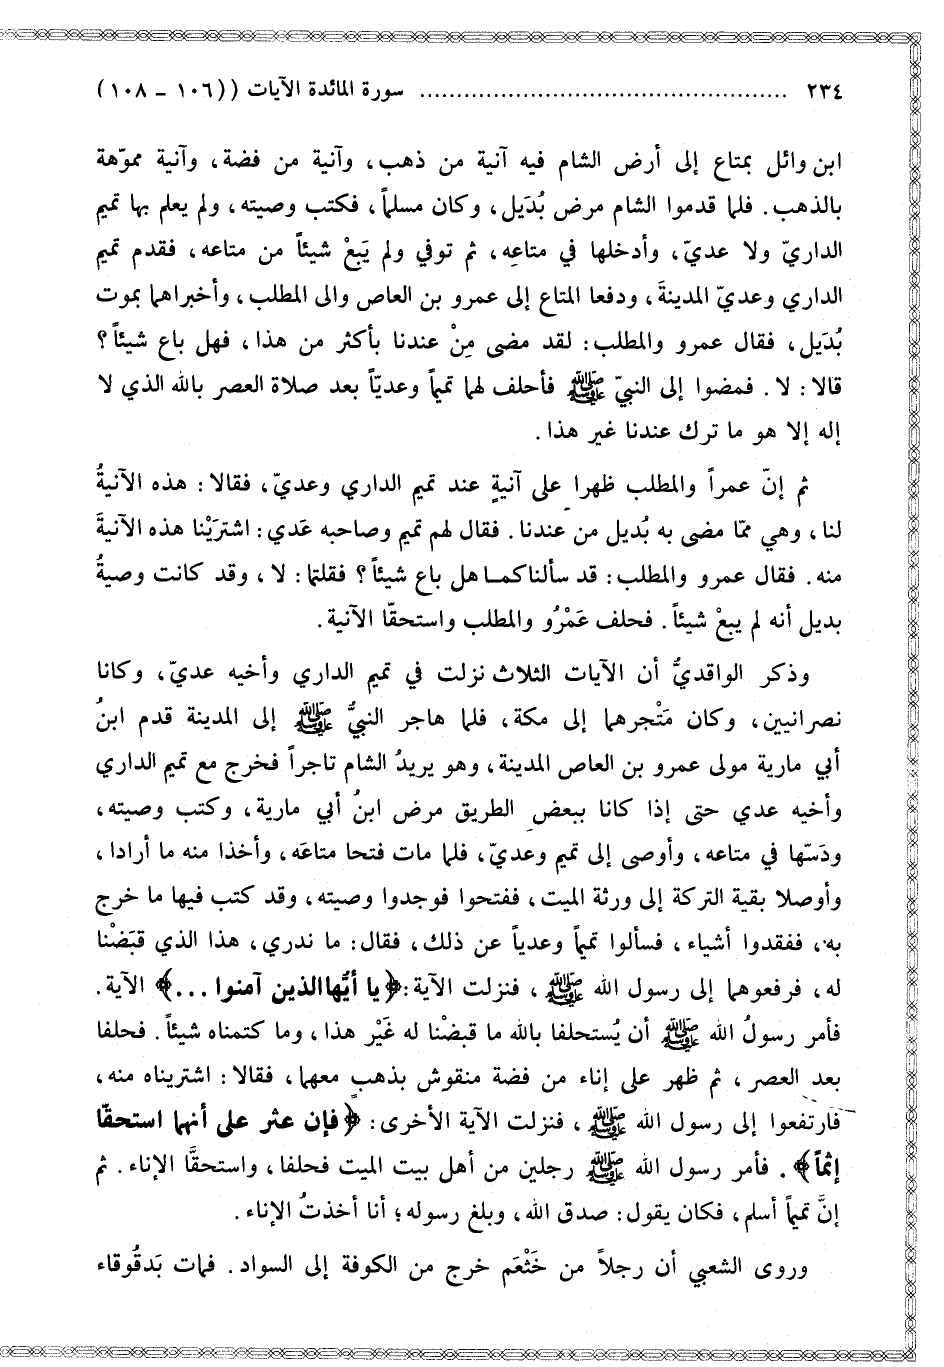 ٢٣٤ ................................................ سورة المائدة الآيات ((١٠٦ - ١٠٨)
ابن وائل بمتاع إلى أرض الشام فيه آنية من ذهب، وآنية من فضة، وآنية مموّهة
بالذهب. فلما قدموا الشام مرض بُدَيل، وكان مسلماً، فكتب وصيته، ولم يعلم بها تميم
الداريّ ولا عديّ، وأدخلها في متاعِه، ثم توفي ولم يَبعْ شيئاً من متاعه، فقدم تميم
الداري وعديّ المدينةَ، ودفعا المتاع إلى عمرو بن العاص والى المطلب، وأخبراهما بموت
بُدَيل، فقال عمرو والمطلب: لقد مضى مِنْ عندنا بأكثر من هذا، فهل باع شيئاً؟
قالا: لا. فمضوا إلى النبيّ ﷺ فأحلف لهما تميماً وعديّاً بعد صلاة العصر بالله الذي لا
إله إلا هو ما ترك عندنا غير هذا.
ثم إنّ عمراً والمطلب ظهرا على آنيةٍ عند تميم الداري وعديّ، فقالا: هذه الآنيةُ
لنا، وهي ممّا مضى به بُديل من عندنا. فقال لهم تميم وصاحبه عَدي: اشترَيْنا هذه الآنيةَ
منه. فقال عمرو والمطلب: قد سألناكما هل باع شيئاً؟ فقلتما: لا، وقد كانت وصيةُ
بديل أنه لم يبعْ شيئاً. فحلف عَمْرُو والمطلب واستحقّا الآنية.
وذكر الواقديُّ أن الآيات الثلاث نزلت في تميم الداري وأخيه عديّ، وكانا
نصرانيين، وكان مَتْجرهما إلى مكة، فلما هاجر النبيُّ ﷺ إلى المدينة قدم ابنُ
أبي مارية مولى عمرو بن العاص المدينة، وهو يريدُ الشام تاجراً فخرج مع تميم الداري
وأخيه عدي حتى إذا كانا ببعض الطريق مرض ابنُ أبي مارية، وكتب وصيته،
ودَسّها في متاعه، وأوصى إلى تميم وعديّ، فلما مات فتحا متاعَه، وأخذا منه ما أرادا،
وأوصلا بقية التركة إلى ورثة الميت، ففتحوا فوجدوا وصيته، وقد كتب فيها ما خرج
به، ففقدوا أشياء، فسألوا تميماً وعدياً عن ذلك، فقال: ما ندري، هذا الذي قبَضْنا
له، فرفعوهما إلى رسول الله ﷺ، فنزلت الآية: ﴿يا أيُّها الذين آمنوا ...﴾ الآية.
فأمر رسولُ الله ﷺ أن يُستحلفا بالله ما قبضْنا له غَيْر هذا، وما كتمناه شيئاً. فحلفا
بعد العصر، ثم ظهر على إناء من فضة منقوش بذهبٍ معهما، فقالا: اشتريناه منه،
فارتفعوا إلى رسول الله ﷺ، فنزلت الآية الأخرى: ﴿فإن عثر على أنهما استحقّا
إثماً﴾. فأمر رسول الله ﷺ رجلين من أهل بيت الميت فحلفا، واستحقَّا الإناء. ثم
إنَّ تميماً أسلم، فكان يقول: صدق الله، وبلغ رسوله؛ أنا أخذتُ الإناء.
وروى الشعبي أن رجلاً من خَثْعَم خرج من الكوفة إلى السواد. فمات بَدقُوقاء